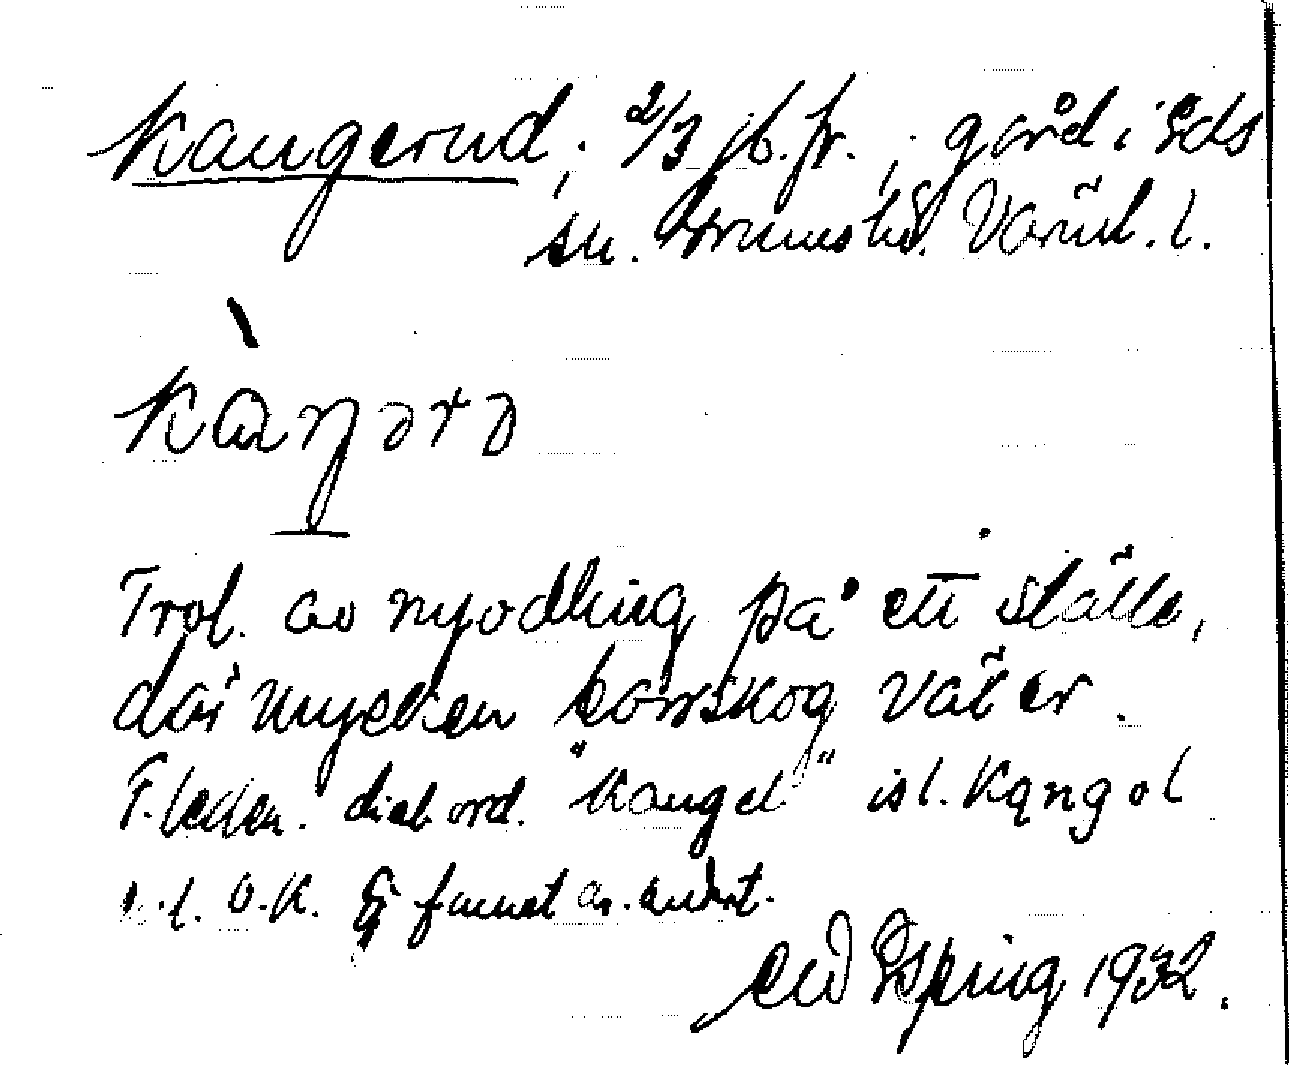 Kangerud; 2/3 jb.fr.; gård i Eds
sn. Grums hd. Värml. l.
kàŋərə
Trol. av nyodling på ett ställe,
där mycken barrskog växer.
F. leden. dial. ord. "Kangel" isl. Kǫngol
Ej funnet av. ant.
Espring 1932.